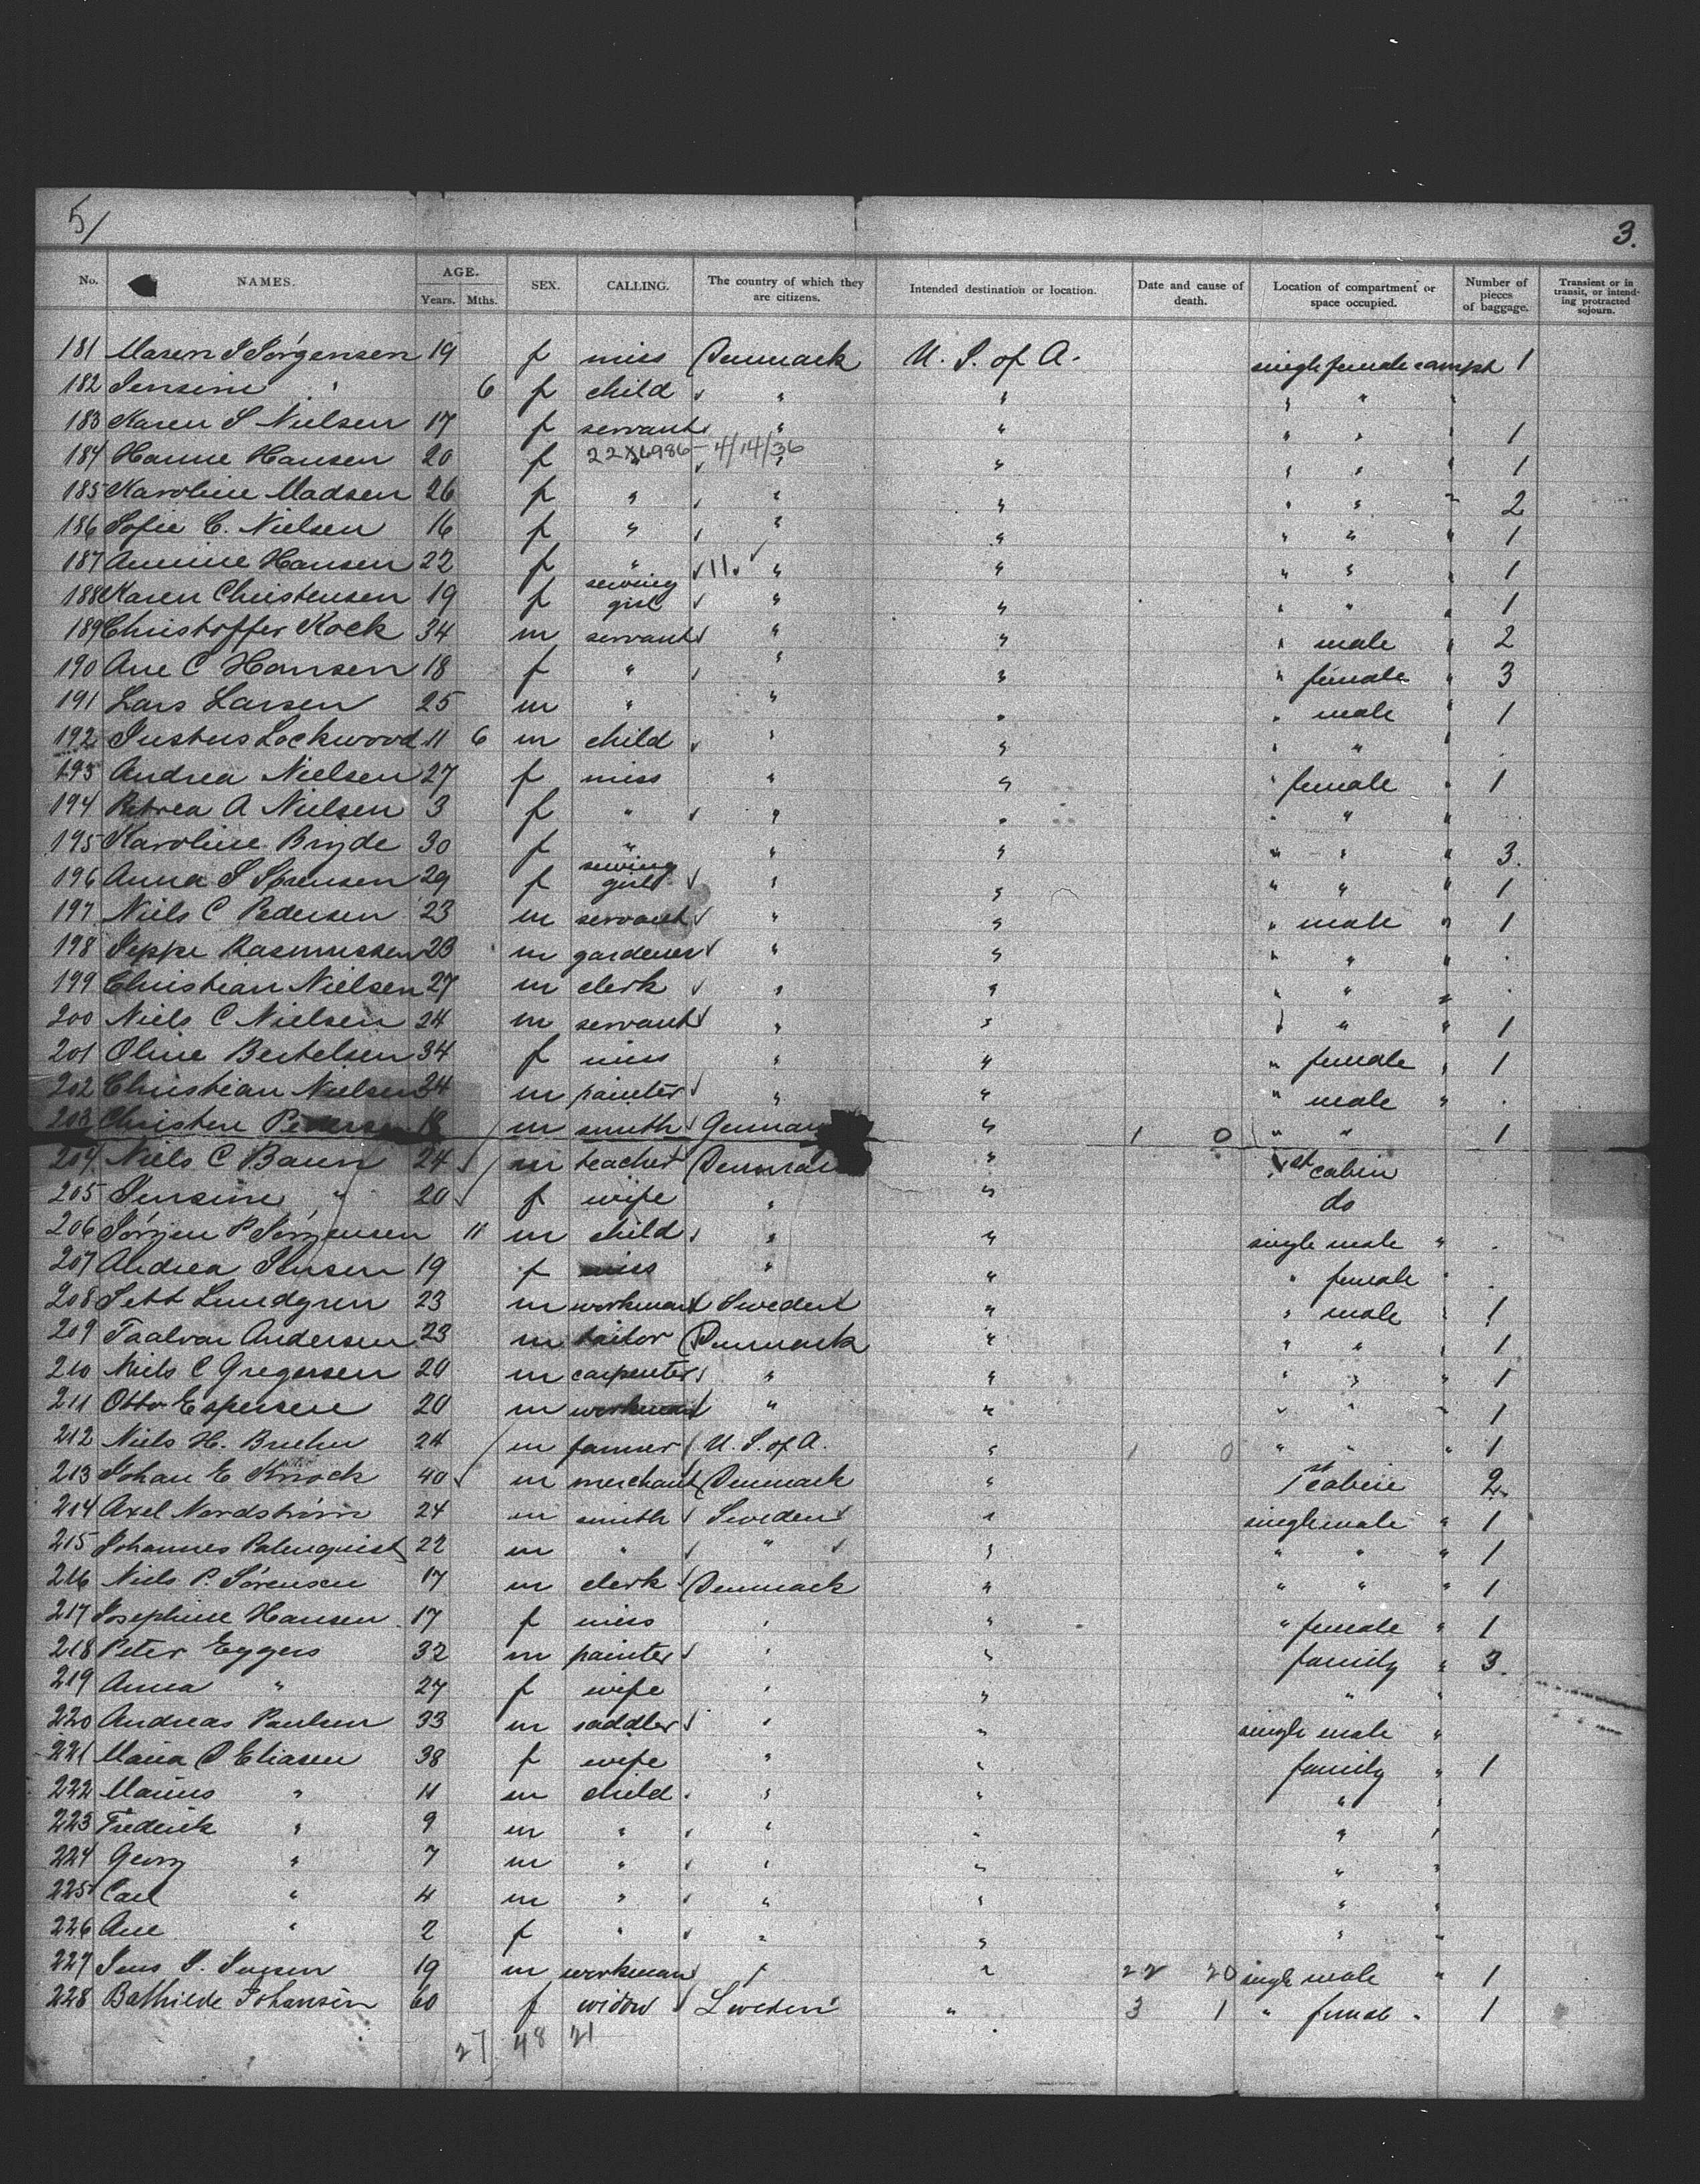 5/
3.
No. NAMES. AGE. Years. Mths. SEX. CALLING. The country of which they are citizens. Intended destination or location. Date and cause of death. Location of compartment or space occupied. Number of pieces of baggage. Transient or in transit, or intending protracted sojourn.
181 Maren J Jörgensen 19 f miss Denmark U. S. of A. single female compt 1
182 Jensine " 6 f child " " " "
183 Karen S Nielsen 17 f servant " " " " " 1
184 Hanne Hansen 20 f 22X6986-4/14/36 " " " " " 1
185 Karoline Madsen 26 f " " " " " " 2
186 Sofie C. Nielsen 16 f " " " " " " 1
187 Annine Hansen 22 f " 11. " " " " " 1
188 Karen Christensen 19 f sewing girl " " " " " 1
189 Christoffer Kock 34 m servant " " " male " 2
190 Ane C Hansen 18 f " " " " female " 3
191 Lars Larsen 25 m " " " " male " 1
192 Justus Lockwood 11 6 m child " " " " "
193 Andrea Nielsen 27 f miss " " " female " 1
194 Petrea A Nielsen 3 f " " " " " "
195 Karoline Bryde 30 f " " " " " " 3.
196 Anna S Sørensen 29 f sewing girl " " " " " 1
197 Niels C Pedersen 23 m servant " " " male " 1
198 Jeppe Rasmussen 23 m gardener " " " " "
199 Christian Nielsen 27 m clerk " " " " "
200 Niels C Nielsen 24 m servant " " " " " 1
201 Oline Bertelsen 34 f miss " " " female " 1
202 Christian Nielsen 24 m painter " " " male "
203 Christen Pedersen 18 m smith Germany " 1 0 " " 1
204 Niels C Baun 24 m teacher Denmark " 1st cabin
205 Jensine " 20 f wife " " do
206 Jörgen P Jörgensen 11 m child " " single male "
207 Andrea Jensen 19 f miss " " " female "
208 Sett Lundgren 23 m workman Sweden " " male " 1
209 Andersen 23 m tailor Denmark " " " " 1
210 Niels C Gregersen 20 m carpenter " " " " " 1
211 Otto Espersen 20 m workman " " " " " 1
212 Niels H. Bruhn 24 m farmer U. S. of A. " 1 0 " " " 1
213 Johan E Knock 40 m merchant Denmark " 1st cabin 2.
214 Axel Nordström 24 m smith Sweden " single male " 1
215 Johannes Palmquist 22 m " " " " " " 1
216 Niels P. Sörensen 17 m clerk Denmark " " " " 1
217 Josephine Hansen 17 f miss " " " female " 1
218 Peter Eggers 32 m painter " " family " 3.
219 Anna " 27 f wife " " " "
220 Andreas Paulsen 33 m saddler " " single male "
221 Maria Eliasen 38 f wife " " family " 1
222 Marius " 11 m child " " " "
223 Frederik " 9 m " " " " "
224 Georg " 7 m " " " " "
225 Carl " 4 m " " " " "
226 Ane " 2 f " " " " "
227 Jens J. Jensen 19 m workman " " 22 20 single male " 1
228 Bathilde Johansen 60 f widow Sweden " 3 1 " female " 1
27 48 21